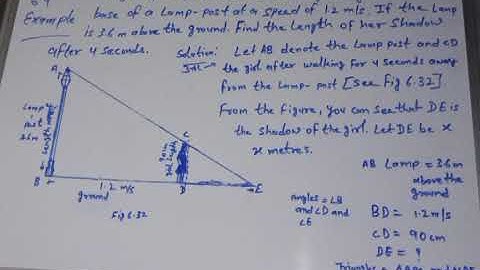 Example base of a Lamp-post at a speed of 1.2 m/s. If the Lamp
is 3.6m above the ground. Find the Length of her Shadow
after 4 seconds.
Solution: Let AB denote the Lamp post and CD
the girl after walking for 4 seconds away
from the Lamp-post [see fig 6.32]
From the figure, you can see that DE is
the shadow of the girl. Let DE be x
x metres.
A
Lamp
Post
3.6m
C
B
1.2 m/s
D
E
ground
Fig 6.32
Angles = ∠B
and ∠D and
∠E
AB Lamp = 3.6m
above the
ground
BD = 1.2 m/s
CD = 90 cm
DE = ?